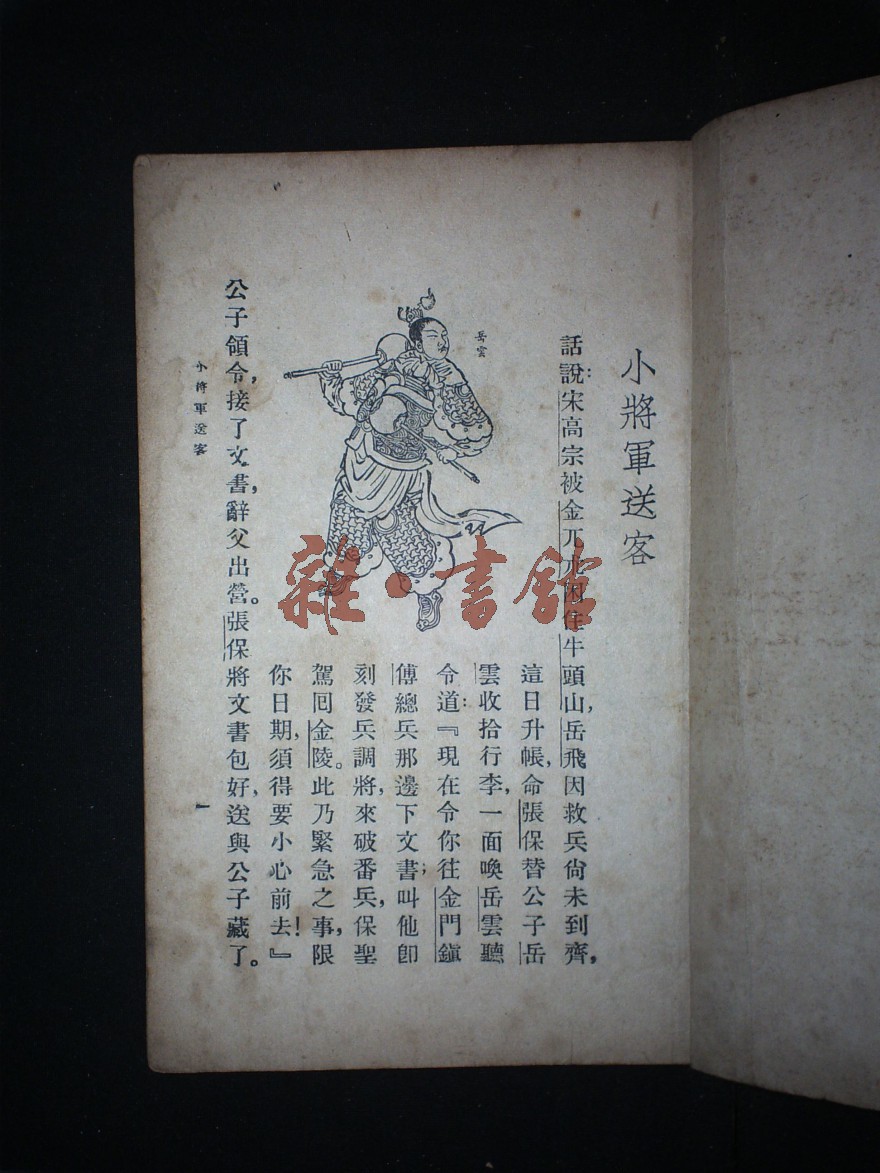 小將軍送客
話說：宋高宗被金兀朮困住牛頭山，岳飛因救兵尙未到齊，
岳雲
這日升帳，命張保替公子岳
雲收拾行李，一面喚岳雲聽
令道：『現在令你往金門鎭
傅總兵那邊下文書；叫他卽
刻發兵調將，來破番兵，保聖
駕囘金陵。此乃緊急之事，限
你日期，須得要小心前去！』
公子領令，接了文書，辭父出營。張保將文書包好，送與公子藏了。
小將軍送客
一
雜·書館